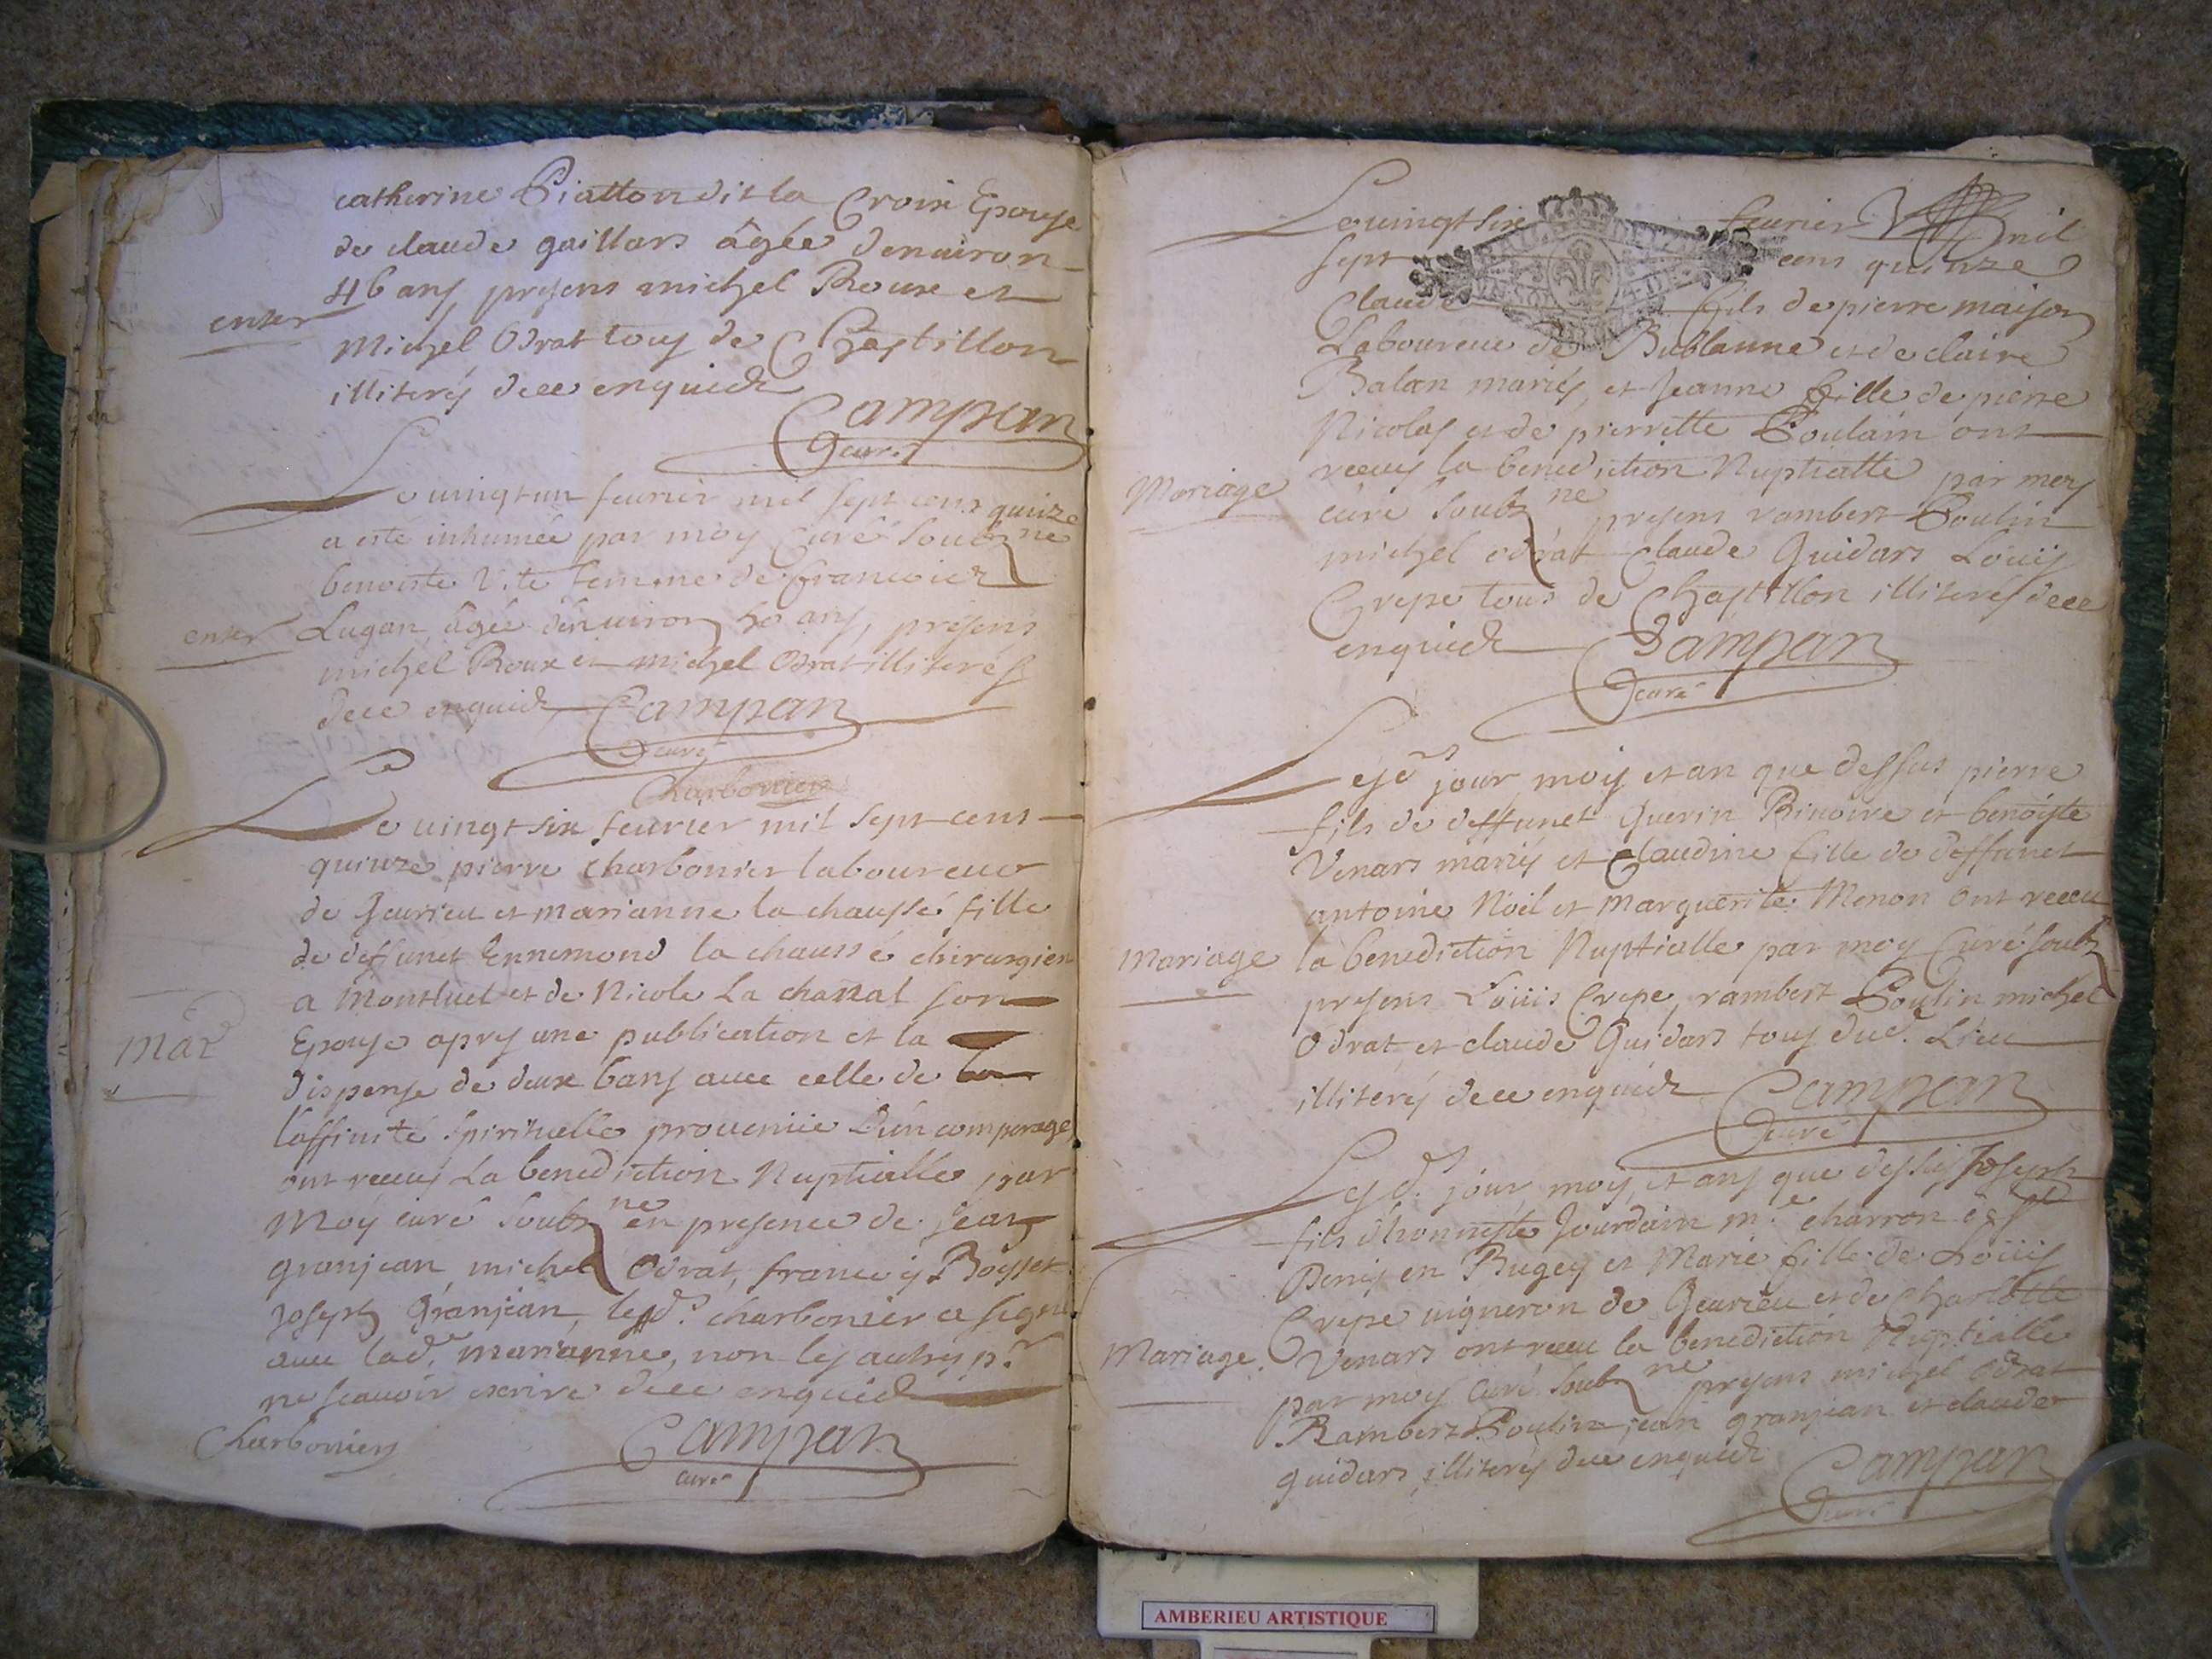 catherine Piatton dit la Croix Epouse
de claude gaillars âgée denuiron
46 ans, presens michel Roux et
enter
Michel Odrat tous de Chastillon
illiterés de ce enquis
Campan
curé
Le uingt un feurier mil sept cens quinze
a esté inhumée par moy Curé soubz ne
benoiste Vite femme de francois
enter
Lugan, âgée d'enuiron 50 ans, presens
michel Roux et michel Odrat illiterés
de ce enquis Campan
curé
Charbonier
Le uingt six feurier mil sept cens
quinze pierre charbonier laboureur
de Jeurieu et marianne la chaussé fille
de deffunct Ennemond la chaussé chirurgien
a Montluel et de Nicole La chassal son
Mar
Epouse apres une publication et la
dispense de deux bans auec celle de
l'affinité spirituelle prouenüe d'un comperage
ont receus La benediction Nuptialle par
Moy curé soubz ne en presence de jean
granjean, michel Odrat, francois Boysset
Joseph Granjean, led. charbonier a signé
auec lad. marianne, non les autres pr
ne scauoir escrire de ce enquis
Charbonier
Campan
curé
Le uingt six feurier mil
sept cens quinze
Claude fils de pierre maison
Laboureur de Bublanne et de claire
Balan mariés, et Jeanne fille de pierre
Nicolas et de pierrette Poulain ont
receus la benediction Nuptialle par moy
Mariage
curé soubz ne presens rambert Poulin
michel odrat claude Guidars Loüis
Crepe tous de Chastillon illiterés de ce
enquis Campan
curé
Lesd. jour, mois et an que dessus pierre
fils de deffunct Guerin Binoire et benoiste
Venars mariés et Claudine fille de deffunct
antoine Noël et Marguerite Menon ont receu
Mariage
la benediction Nuptialle par moy Curé soubz
presens Loüis Crepe, rambert Poulin michel
Odrat et claude Guidars tous dud. Lieu
illiterés de ce enquis Campan
curé
Lesd. jour mois, et ans que dessus Joseph
fils d'honneste Jourdain me charron
Denis en Bugey et Marie fille de Loüis
Crepe uigneron de Jeurieu et de Charlotte
Mariage.
Venars ont receu la benediction Nuptialle
par moy curé soubz ne presens michel Odrat
Rambert Poulin, jean granjean et claude
guidars, illiterés de ce enquis
Campan
curé
AMBERIEU ARTISTIQUE